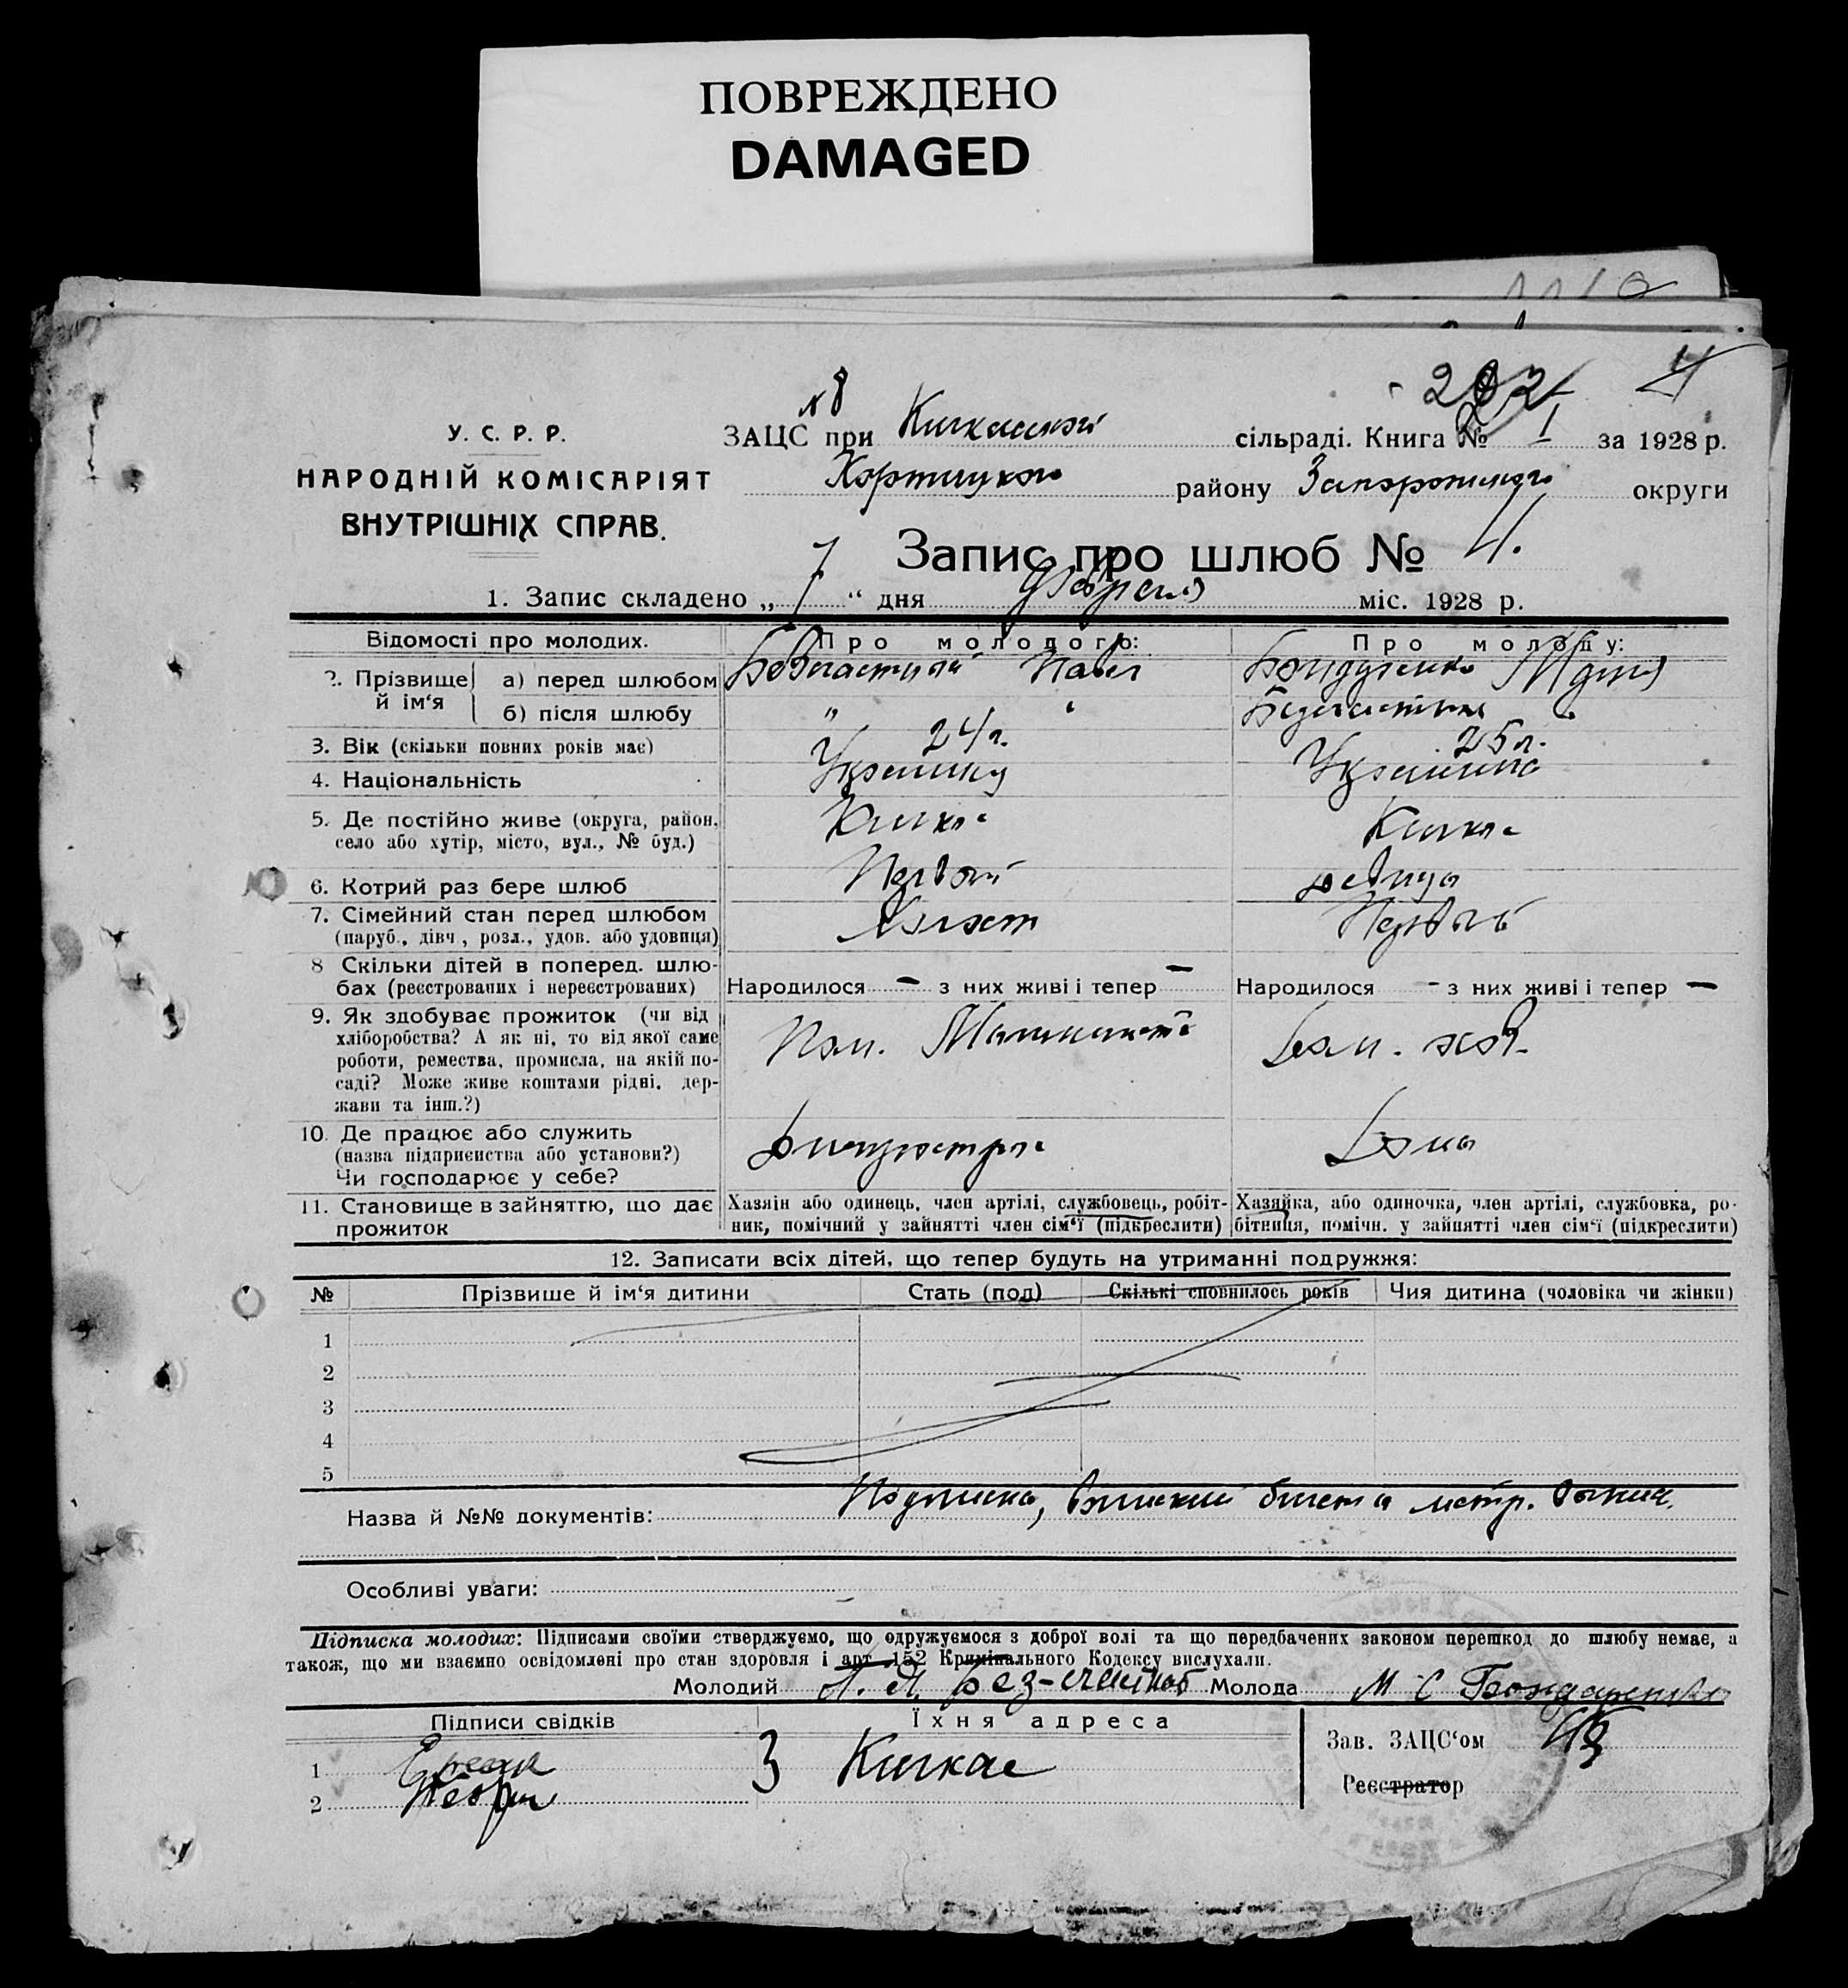 ПОВРЕЖДЕНО
DAMAGED
4
У. С. Р. Р.
НАРОДНІЙ КОМІСАРІЯТ
ВНУТРІШНІХ СПРАВ.
№ 8
ЗАЦС при Кичкасской сільраді. Книга № I за 1928 р.
Хортицкого району Запорожского округи
Запис про шлюб № 4.
1. Запис складено „ 7 “ дня Февраля міс. 1928 р.
Відомості про молодих. Про молодого: Про молоду:
2. Прізвище й ім‘я а) перед шлюбом Безчастный Павел Бондаренко Мария
б) після шлюбу " " Безчастная "
3. Вік (скільки повних років має) 24 г. 25 л.
4. Національність Украинец Украинка
5. Де постійно живе (округа, район, Кичкас Кичкас
село або хутір, місто, вул., № буд.)
6. Котрий раз бере шлюб Первый девица
7. Сімейний стан перед шлюбом Холост Первый
(паруб., дівч., розл., удов. або удовиця)
8 Скільки дітей в поперед. шлю-
бах (реєстрованих і нереєстрованих) Народилося — з них живі і тепер — Народилося - з них живі і тепер —
9. Як здобуває прожиток (чи від
хліборобства? А як ні, то від якої саме Пом. Машиниста Дом. хоз.
роботи, ремества, промисла, на якій по-
саді? Може живе коштами рідні, дер-
жави та інш.?)
10. Де працює або служить Днепрострое Дома
(назва підприємства або установи?)
Чи господарює у себе?
11. Становище в зайняттю, що дає прожиток Хазяїн або одинець, член артілі, службовець, робіт-
ник, помічний у зайнятті член сім‘ї (підкреслити) Хазяйка, або одиночка, член артілі, службовка, ро-
бітниця, помічн. у зайнятті член сім‘ї (підкреслити)
12. Записати всіх дітей, що тепер будуть на утриманні подружжя:
№ Прізвише й ім‘я дитини Стать (пол) Скількі сповнилось років Чия дитина (чоловіка чи жінки)
1
2
3
4
5
Назва й №№ документів: Подписка, Воинский билет и метр. выпис.
Особливі уваги:
Підписка молодих: Підписами своїми стверджуємо, що одружуємося з доброї волі та що передбачених законом перешкод до шлюбу немає, а
також, що ми взаємно освідомлені про стан здоровля і арт. 152 Кримінального Кодексу вислухали.
Молодий Молода М С Бондаренко
Підписи свідків Їхня адреса Зав. ЗАЦС‘ом
1 Кичкас
2 Реєстратор